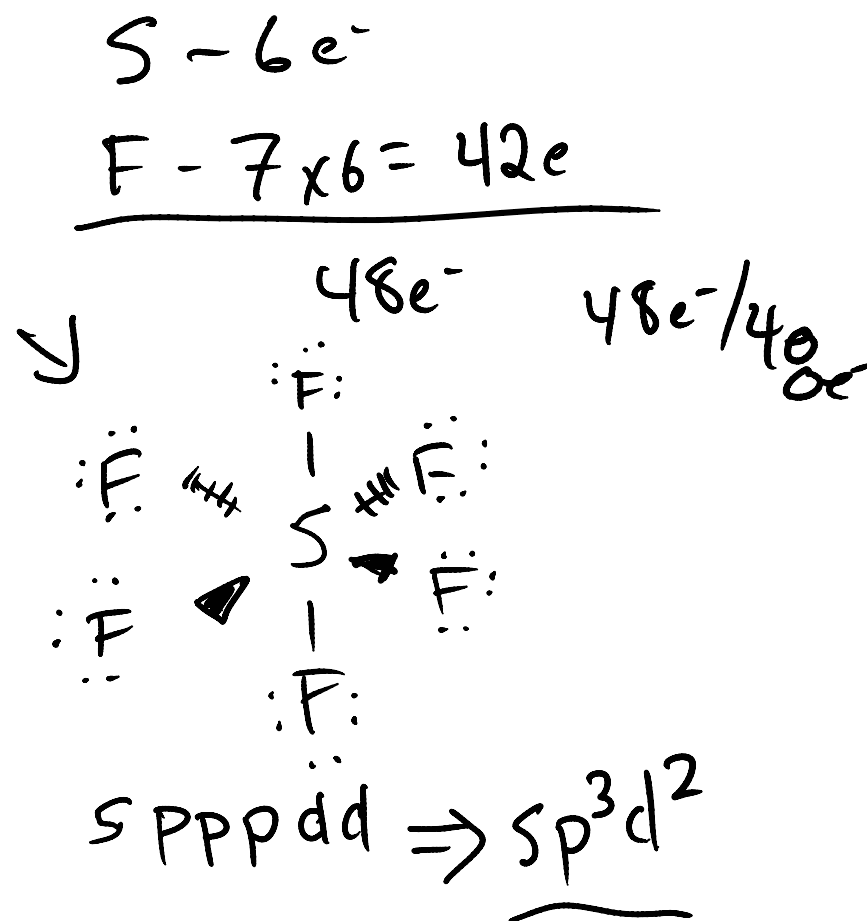 S - 6e⁻
F - 7x6 = 42e
48e⁻
48e⁻/48
0e⁻
F
F F
S
F F
F
s p p p d d ⇒ sp³d²